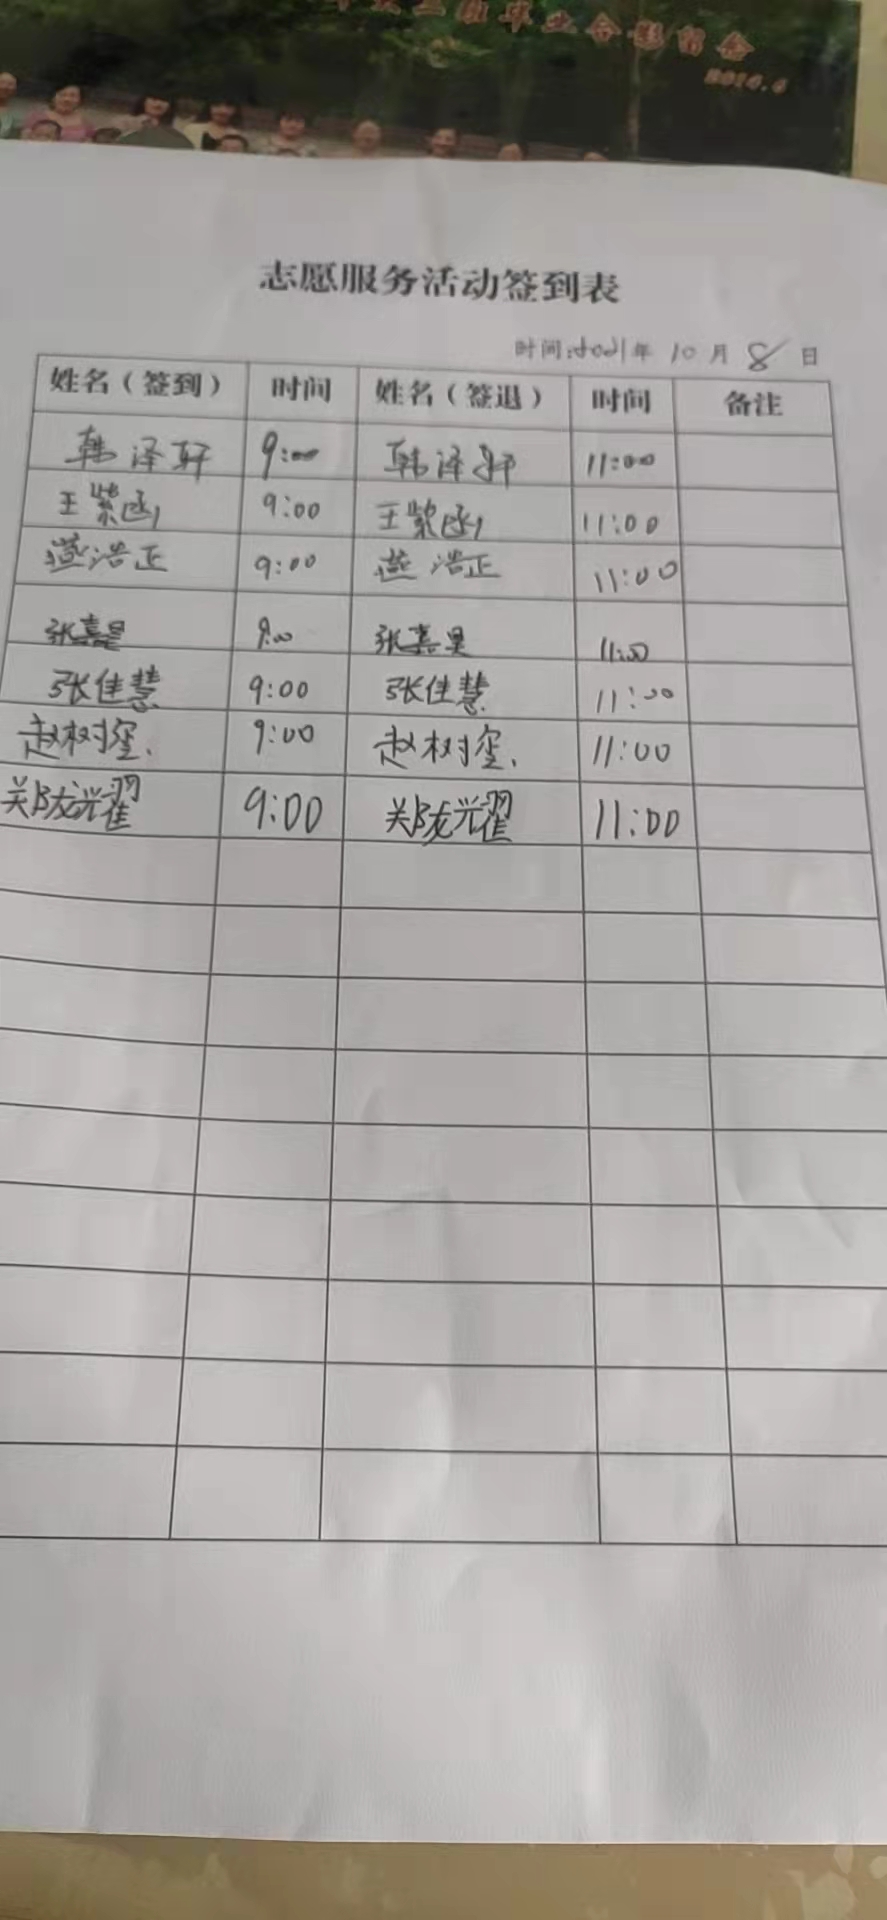 毕业合影留念
2014.6
志愿服务活动签到表
时间:2021年 10 月 8 日
姓名（签到） 时间 姓名（签退） 时间 备注
韩泽轩 9:00 韩泽轩 11:00
王紫函 9:00 王紫函 11:00
浩正 9:00 浩正 11:00
张嘉昊 9:00 张嘉昊 11:00
张佳慧 9:00 张佳慧 11:00
赵树 9:00 赵树 11:00
郑龙耀 9:00 郑龙耀 11:00